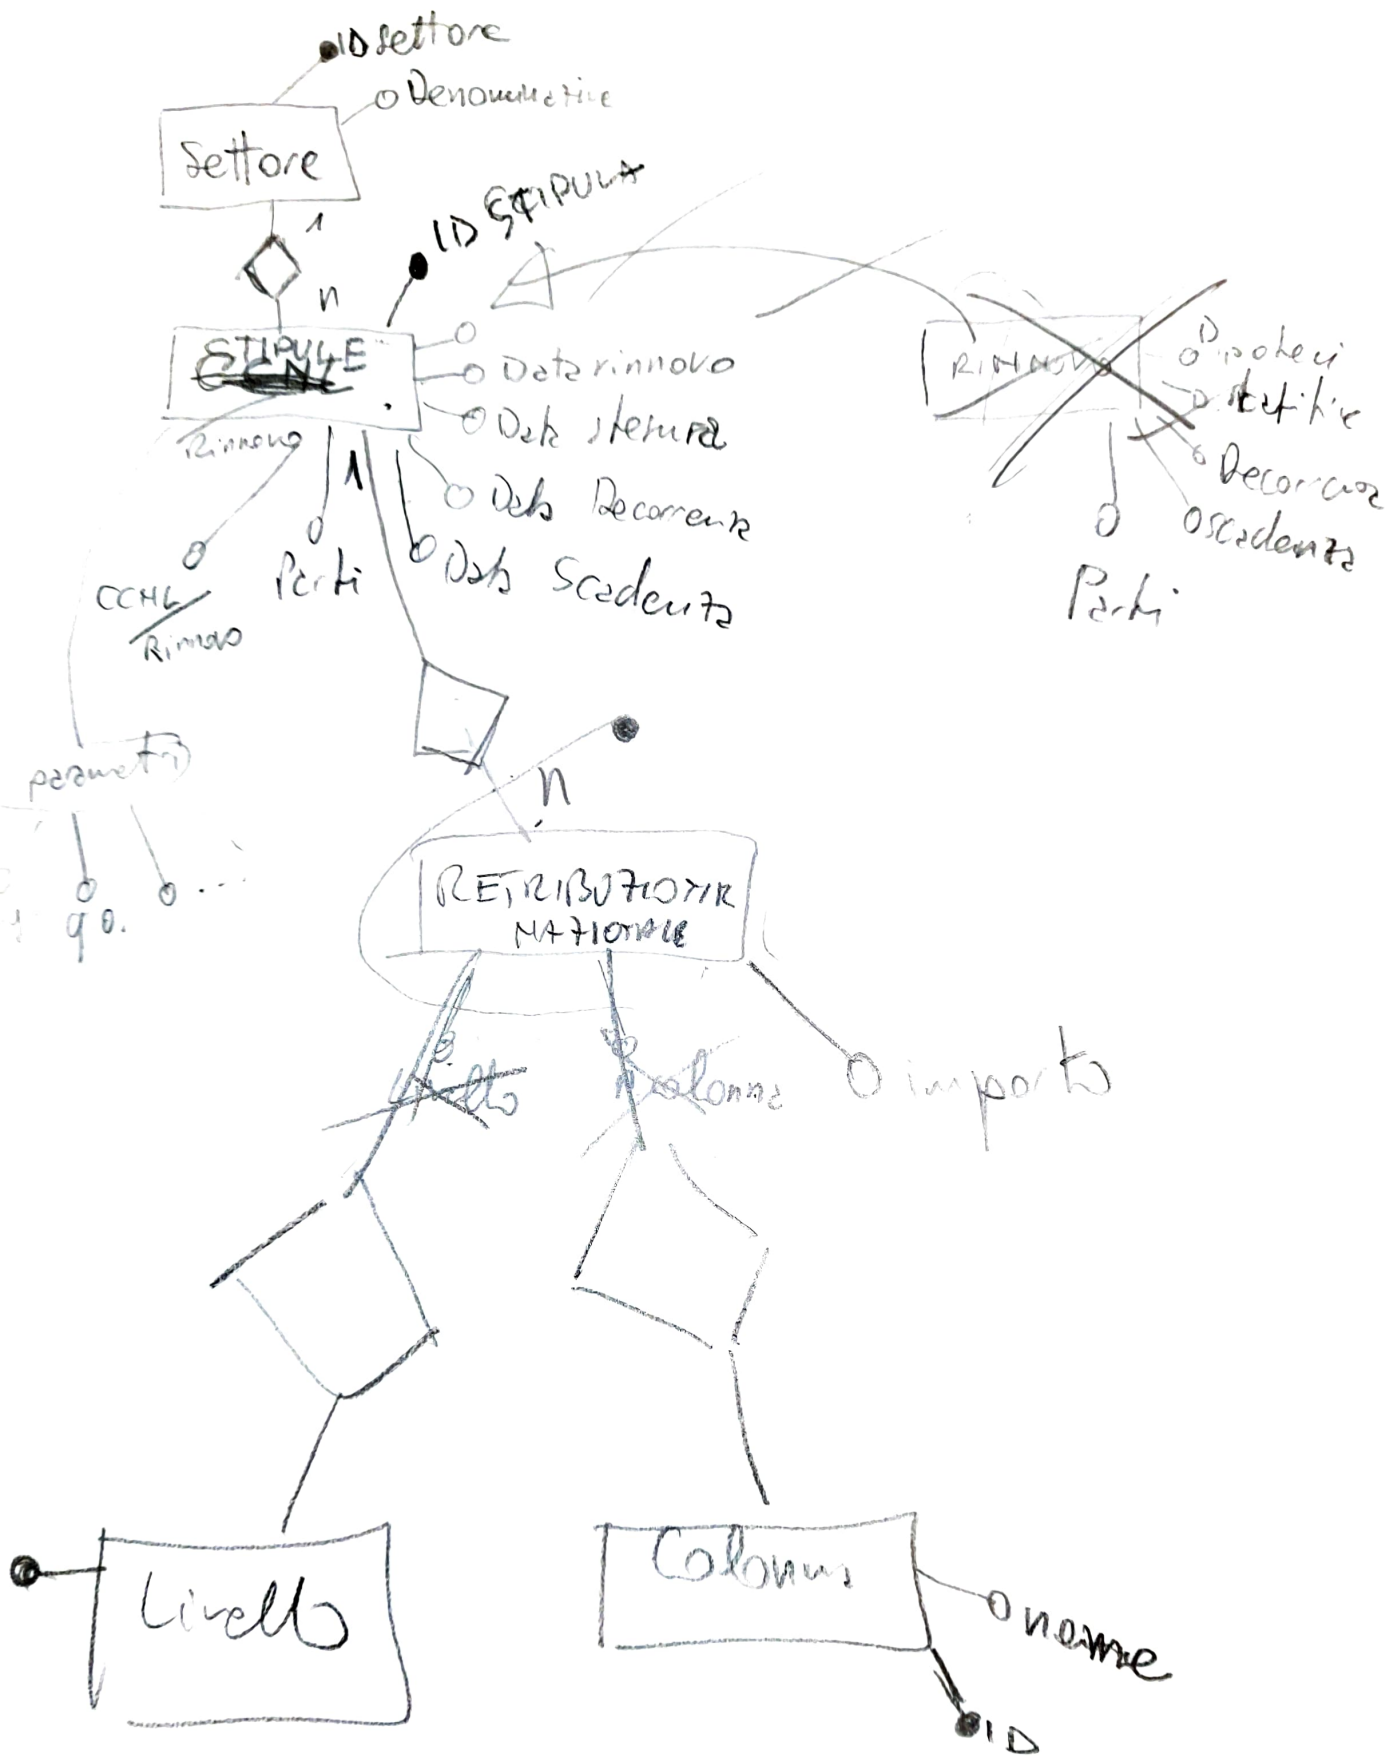 ID settore
Denominative
Settore
1
ID STIPULA
n
STIPULE
CCNL
Data rinnovo
Data stesura
Rinnovo
1
Data Decorrenza
Data Scadenza
Parti
CCNL
Rinnovo
RINNOVO
Ipotesi
Decorrenza
scadenza
Parti
parametri
n
...
RETRIBUZIONE
NAZIONALE
Livello
colonna
importo
Livello
Colonna
nome
ID